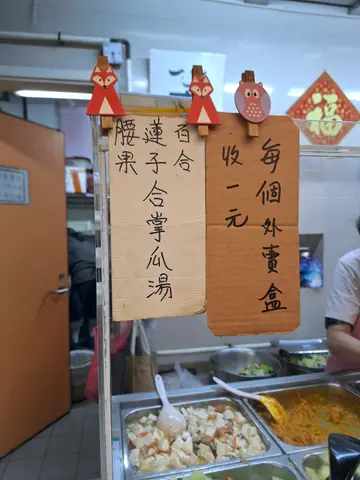 百合
蓮子合掌瓜湯
腰果
每個外賣盒
收一元
福